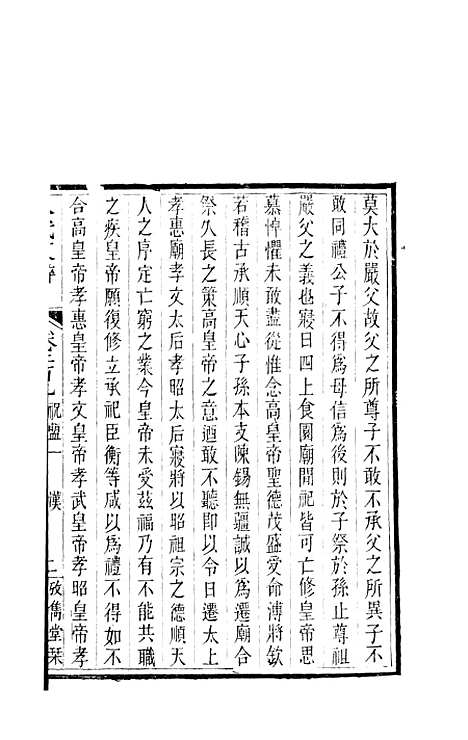 莫大於嚴父故父之所尊子不敢不承父之所異子不
敢同禮公子不得爲母信爲後則於子祭於孫止尊祖
嚴父之義也寢日四上食園廟間祀皆可亡修皇帝思
慕悼懼未敢盡從惟念高皇帝聖德茂盛受命溥將欽
若稽古承順天心子孫本支陳錫無疆誠以爲遷廟合
祭久長之策高皇帝之意迺敢不聽即以令日遷太上
孝惠廟孝文太后孝昭太后寢將以昭祖宗之德順天
人之序定亡窮之業今皇帝未受茲福乃有不能共職
之疾皇帝願復修立承祀臣衡等咸以爲禮不得如不
合高皇帝孝惠皇帝孝文皇帝孝武皇帝孝昭皇帝孝
祝盟一 漢 二 攷雋堂栞